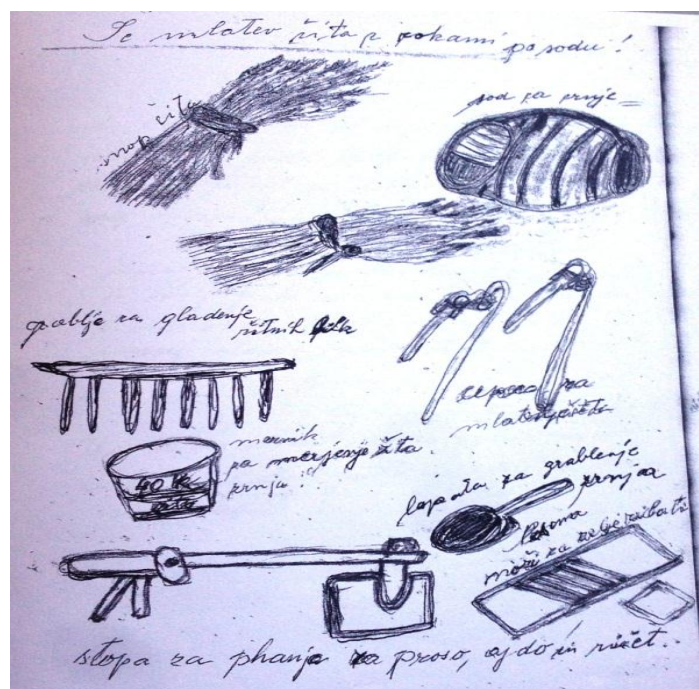 Se mlatev žita z rokami po sodu!
snop žita
sod za zrnje
grablje za gladenje
žitnih
cepca za
mlatenje žita
mernik
za merjenje žita.
zrnja!
40 lt
žita
lopata za grablenje
zrnja
lesena
noži za zelje ribati
stopa za phanje za proso, ajdo in ričet.